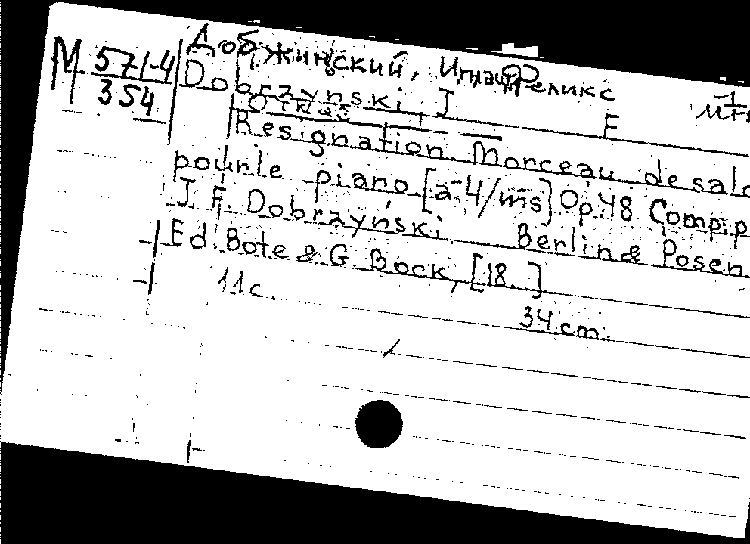 М 571-4
354
Добжинский, Игнац Феликс
1
Dobrzynski, I F
Отказ
Résignation. Morceau de salo
pour le piano [a-4/ms] Op.48 Comp.p
J. F. Dobrzyński. Berlin & Posen
Ed. Bote & G. Bock, [18..]
11 с.
34 cm.